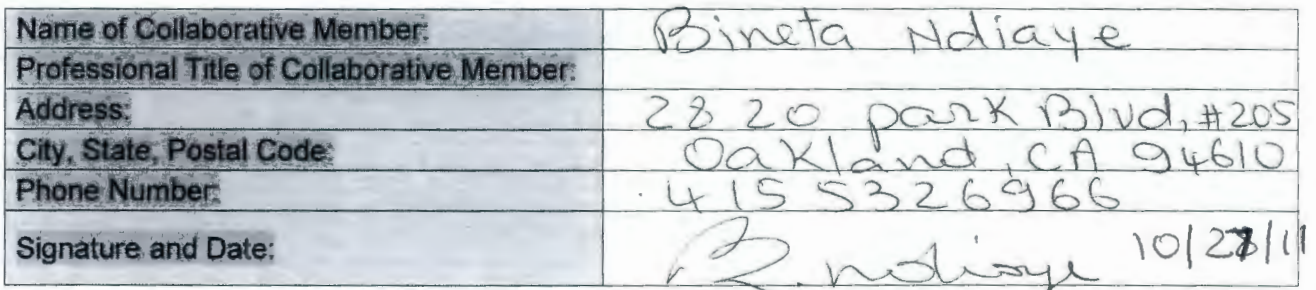 Name of Collaborative Member: Bineta Ndiaye
Professional Title of Collaborative Member:
Address: 2820 park Blvd, #205
City, State, Postal Code: Oakland, CA 94610
Phone Number: 415 5326966
Signature and Date: B. ndiaye